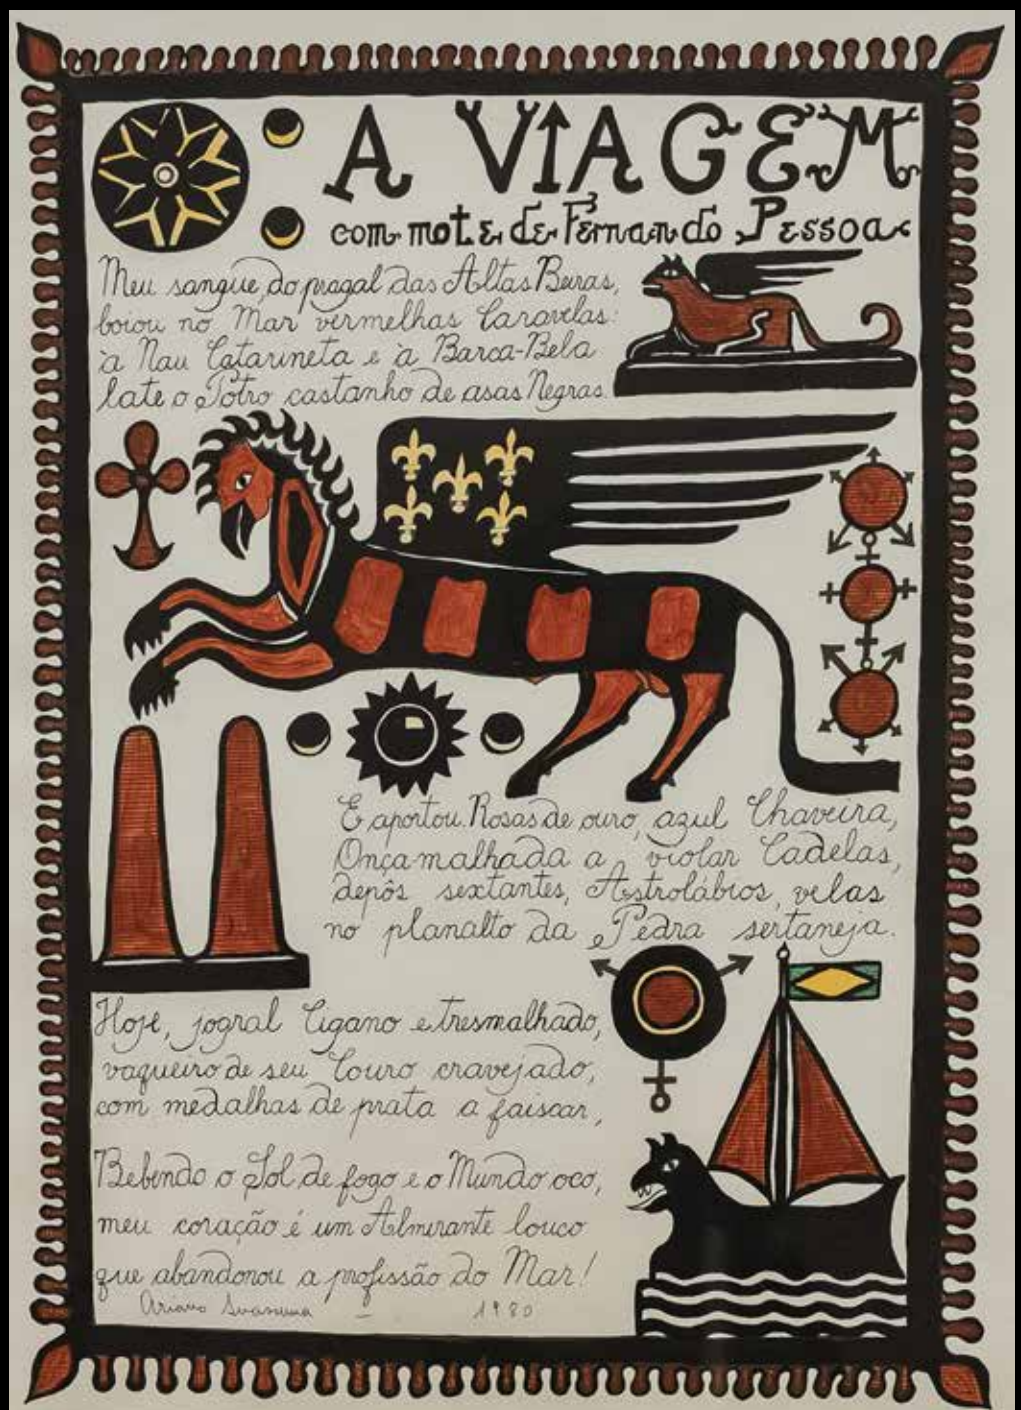 A VIAGEM
com mote de Fernando Pessoa
Meu sangue, do pragal das Altas Beiras,
boiou no Mar vermelhas Caravelas:
à Nau Catarineta e à Barca-Bela
late o Potro castanho de asas Negras.
E aportou. Rosas de ouro, azul Chaveira,
Onça malhada a violar Cadelas,
depôs sextantes, Astrolábios, velas
no planalto da Pedra sertaneja.
Hoje, jogral Cigano e tresmalhado,
vaqueiro de seu Couro cravejado,
com medalhas de prata a faiscar,
Bebendo o Sol de fogo e o Mundo oco,
meu coração é um Almirante louco
que abandonou a profissão do Mar!
Ariano Suassuna - 1980